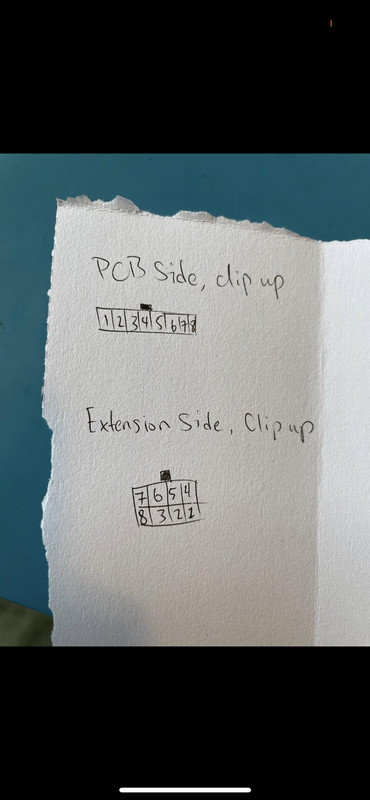 PCB Side, clip up
1 2 3 4 5 6 7 8
Extension Side, Clip up
7 6 5 4
8 3 2 1